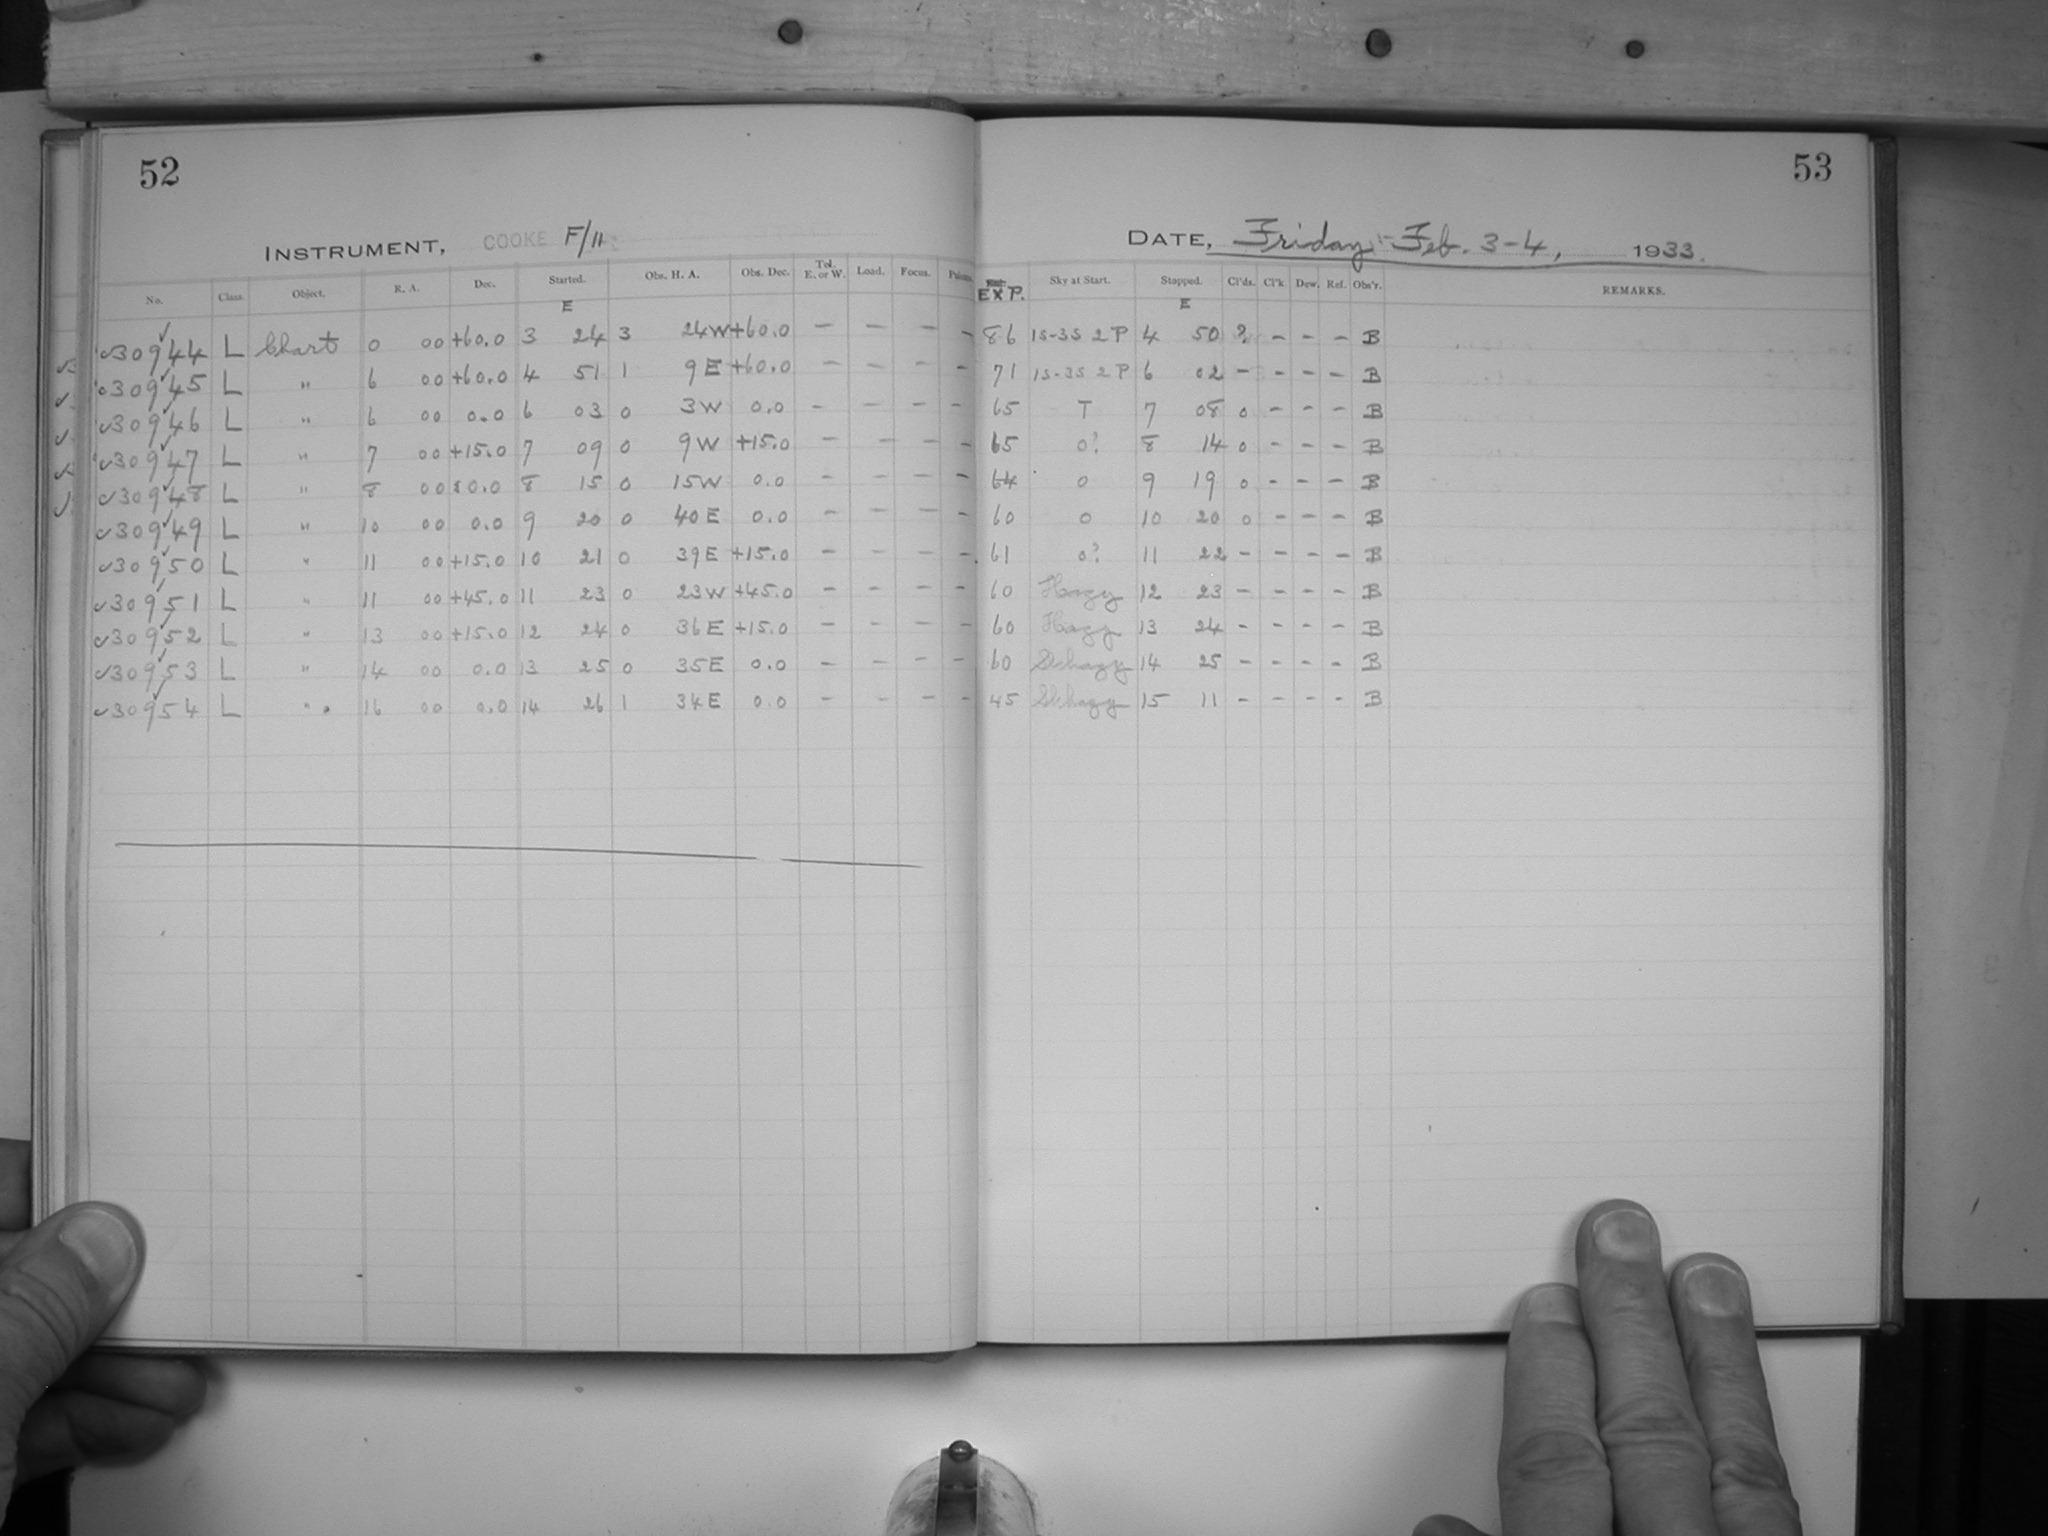 52
INSTRUMENT, COOKE F/11
No. Class. Object. R. A. Dec. Started. Obs. H. A. Obs. Dec. Tel. E. or W. Load. Focus.
E
30944 L Chart 0 00 +60.0 3 24 3 24W +60.0 – – – –
30945 L " 6 00 +60.0 4 51 1 9E +60.0 – – – –
30946 L " 6 00 0.0 6 03 0 3W 0.0 – – – –
30947 L " 7 00 +15.0 7 09 0 9W +15.0 – – – –
30948 L " 8 00 0.0 8 15 0 15W 0.0 – – – –
30949 L " 10 00 0.0 9 20 0 40E 0.0 – – – –
30950 L " 11 00 +15.0 10 21 0 39E +15.0 – – – –
30951 L " 11 00 +45.0 11 23 0 23W +45.0 – – – –
30952 L " 13 00 +15.0 12 24 0 36E +15.0 – – – –
30953 L " 14 00 0.0 13 25 0 35E 0.0 – – – –
30954 L " 16 00 0.0 14 26 1 34E 0.0 – – – –
53
DATE, Friday:- Feb. 3-4, 1933.
EXP. Sky at Start. Stopped. Cl'ds. Cl'k Dew. Ref. Obs'r. REMARKS.
E
86 1S-3S 2P 4 50 ? – – – B
71 1S-3S 2P 6 02 – – – – B
65 T 7 08 0 – – – B
65 0? 8 14 0 – – – B
64 0 9 19 0 – – – B
60 0 10 20 0 – – – B
61 0? 11 22 – – – – B
60 Hazy 12 23 – – – – B
60 Hazy 13 24 – – – – B
60 14 25 – – – – B
45 15 11 – – – – B